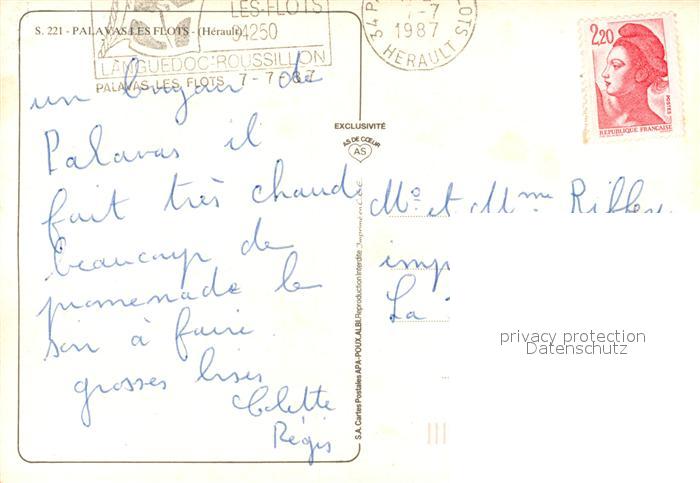 S. 221 - PALAVAS LES FLOTS - (Hérault)
LES-FLOTS
34250
LANGUEDOC-ROUSSILLON
PALAVAS-LES FLOTS 7-7-87
7-7
1987
HERAULT
2,20
POSTES
REPUBLIQUE FRANÇAISE
un bonjour de
Palavas il
fait très chaud
beaucoup de
promenade le
soir à faire
grosses bises
Colette
Régis
EXCLUSIVITÉ
AS DE CŒUR
AS
S.A. Cartes Postales APA-POUX, ALBI, Reproduction Interdite Imprimé en C.E.E.
Mr et Mme
imp
La
privacy protection
Datenschutz